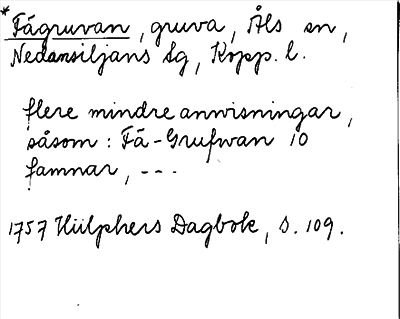 *Fågruvan, gruva, Åls sn,
Nedansiljans Lg, Kopp. l.
flere mindre anvisningar,
såsom: Få-Grufwan 10
famnar, ---
1757 Hülphers Dagbok, s. 109.